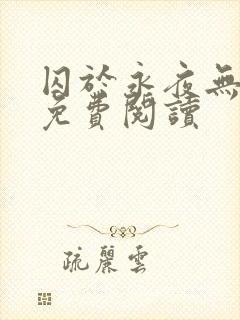 囚於永夜無
免費閱讀
疏麗雲